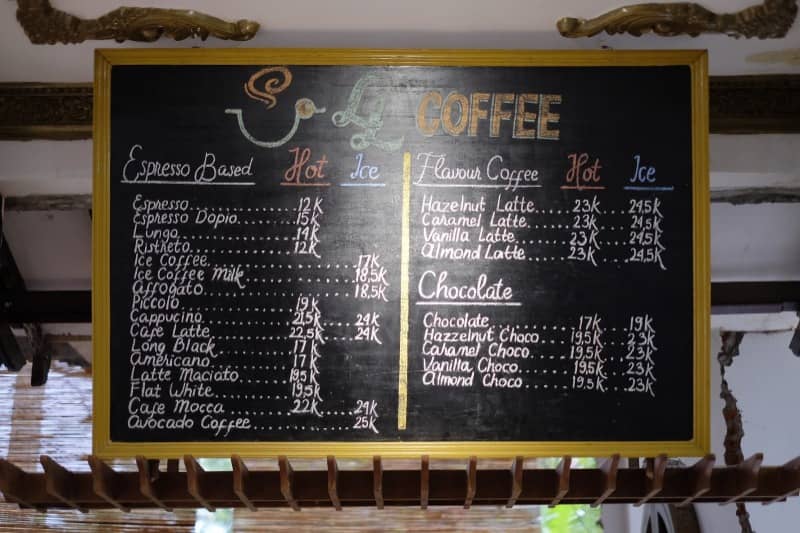 LL COFFEE
Espresso Based Hot Ice
Espresso 12K
Espresso Dopio 15K
Lungo 14K
Ristreto 12K
Ice Coffee 17K
Ice Coffee Milk 18,5K
Affogato 18,5K
Piccolo 19K
Cappucino 21,5K 24K
Cafe Latte 22,5K 24K
Long Black 17K
Americano 17K
Latte Maciato 19,5K
Flat White 19,5K
Cafe Mocca 22K 24K
Avocado Coffee 25K
Flavour Coffee Hot Ice
Hazelnut Latte 23K 24,5K
Caramel Latte 23K 24,5K
Vanilla Latte 23K 24,5K
Almond Latte 23K 24,5K
Chocolate
Chocolate 17K 19K
Hazzelnut Choco 19,5K 23K
Caramel Choco 19,5K 23K
Vanilla Choco 19,5K 23K
Almond Choco 19,5K 23K